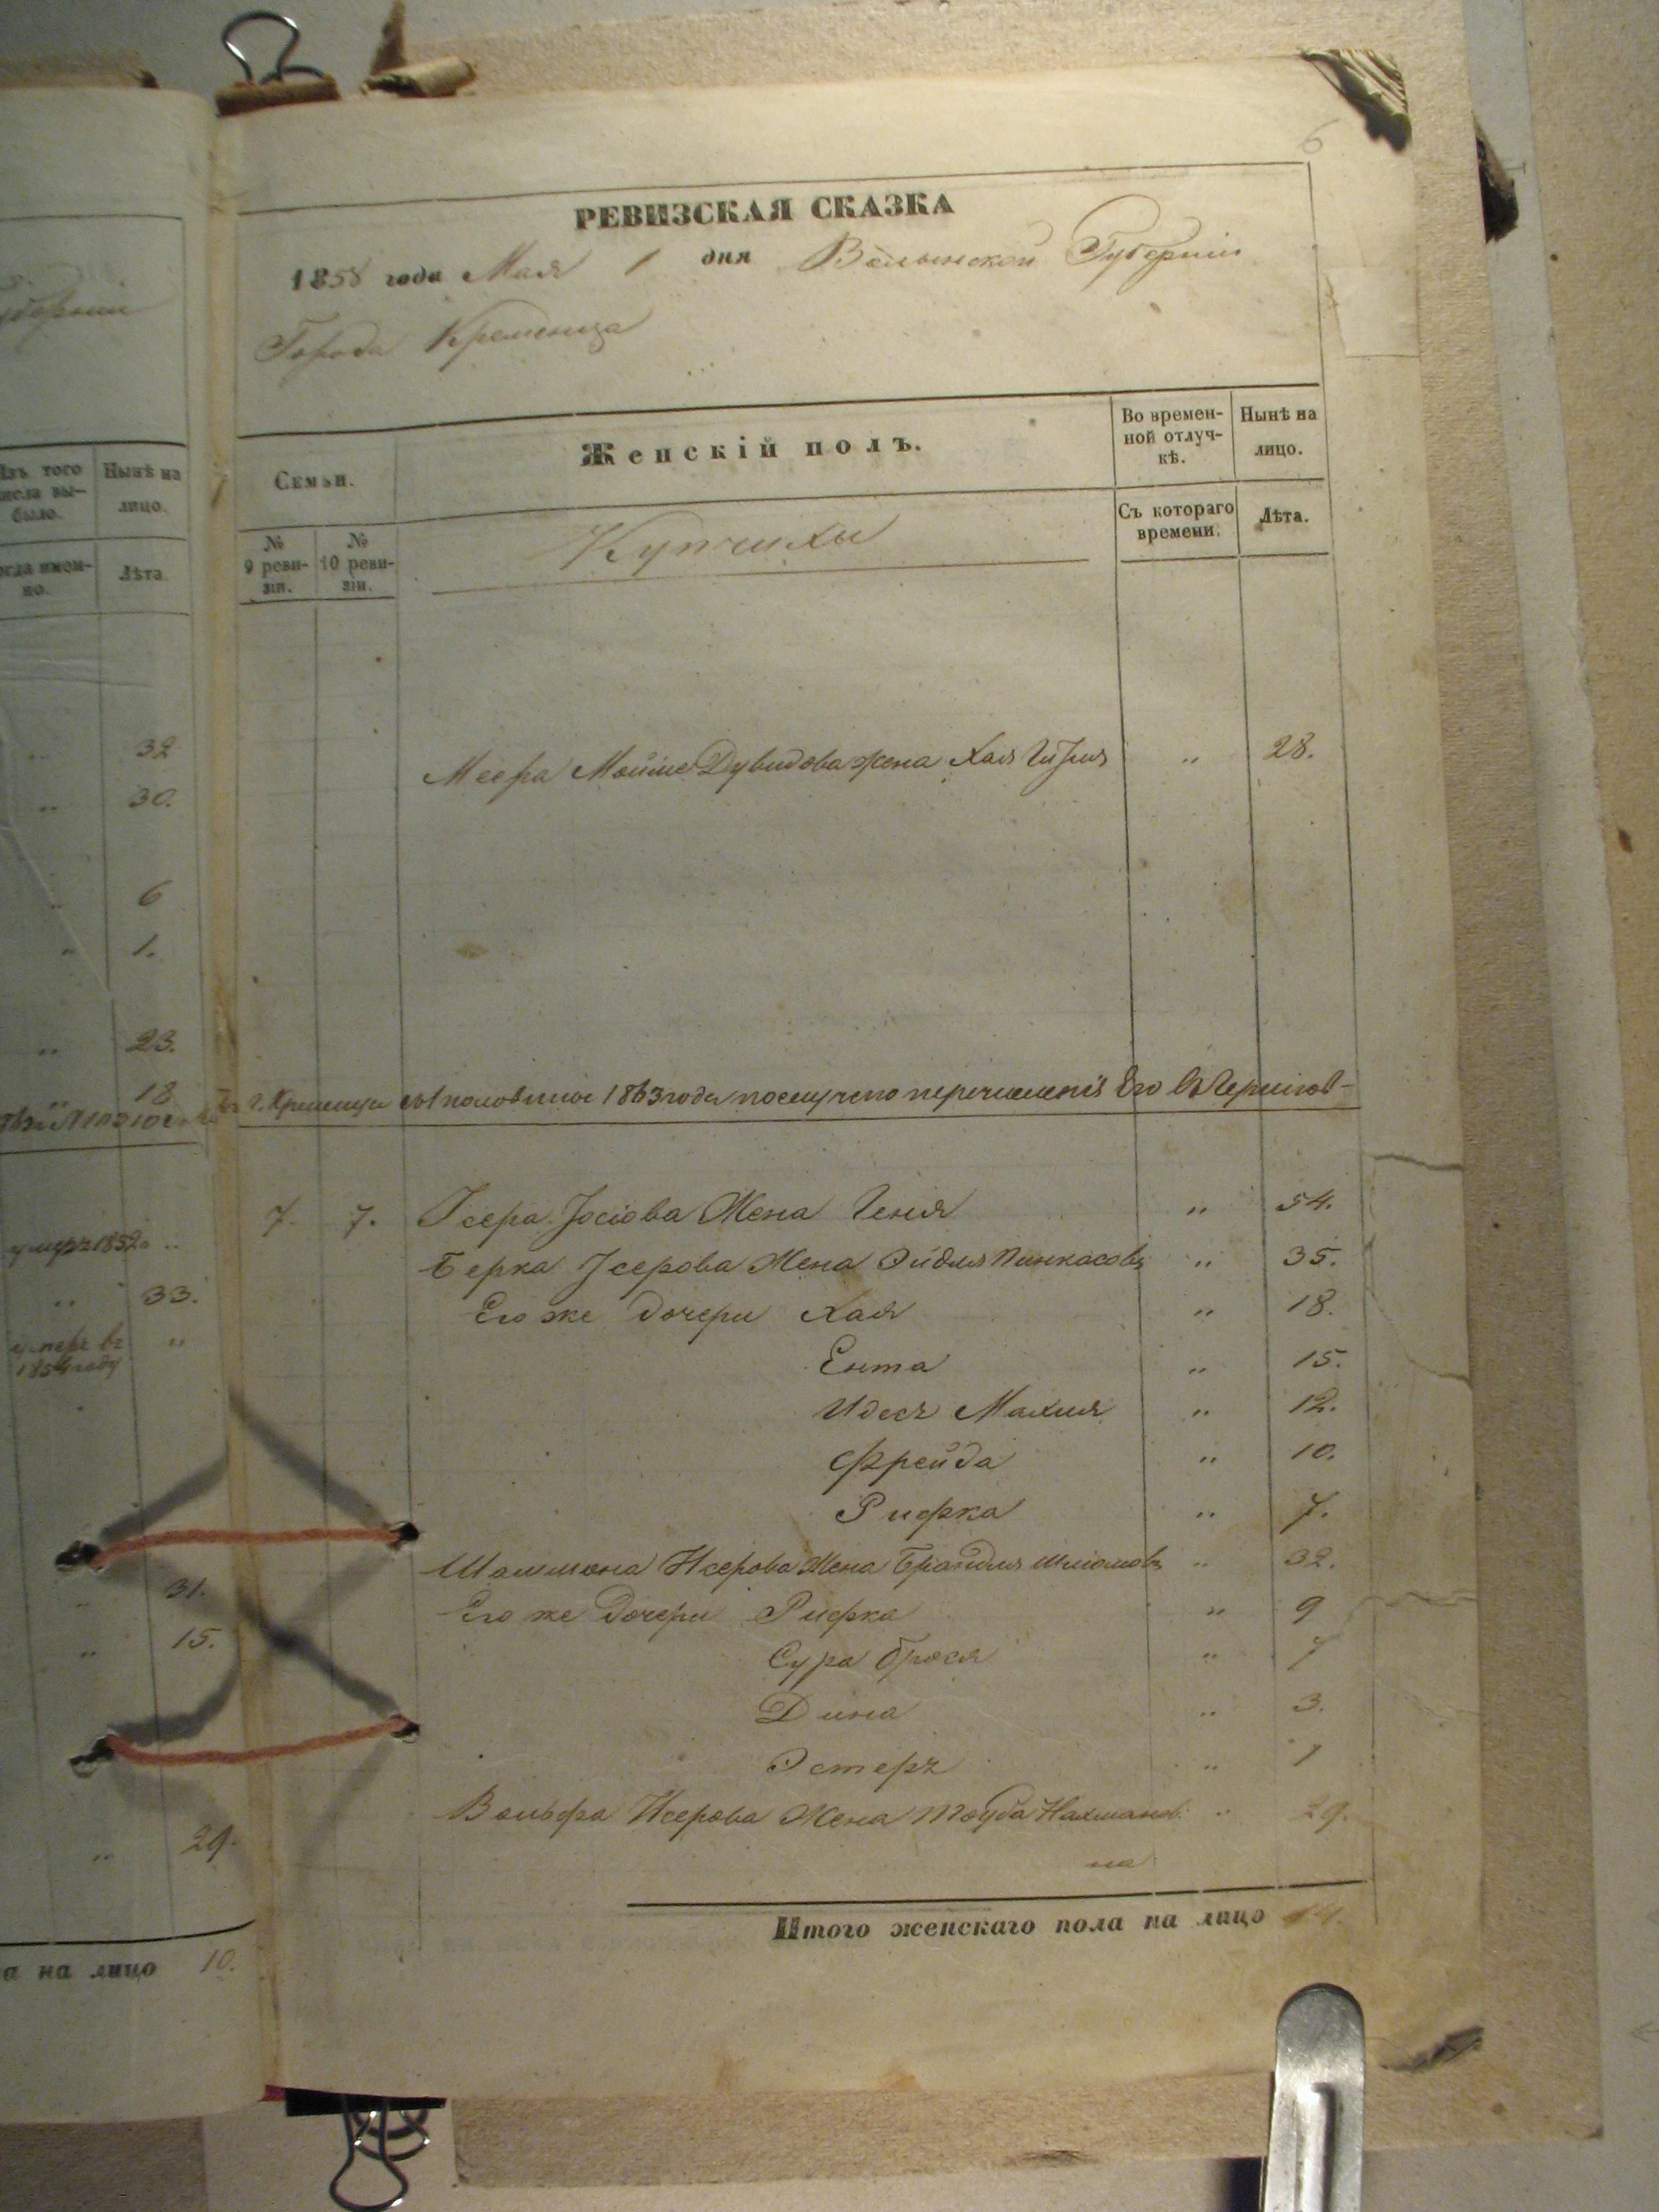 6
РЕВИЗСКАЯ СКАЗКА
1858 года Мая 1 дня Волынской Губерніи
Города Кременца
Изъ того числа вы-было.
Нынѣ на лицо.
Лѣта.
Семьи.
Женскій полъ.
Во времен-ной отлуч-кѣ.
Нынѣ на лицо.
№ 9 реви-зіи.
№ 10 реви-зіи.
Купчихи
Съ котораго времени.
Лѣта.
32
30.
6
1.
23.
18
Меера Мойше Дувидова жена Хая " 28.
г. Кременца 1 половине 1863 года по случаю перечисленія Его въ Чернигов-
7. 7. Ісера Іосіова Жена Геня " 54.
Берка Ісерова Жена Эйдля Пинкасова " 35.
Его же дочери Хая " 18.
Ента " 15.
Идесъ Малия " 12.
Фрейда " 10.
Рифка " 7.
Шлиома Исерова Жена Брандля " 32.
Его же Дочери Рифка " 9
Сура Брося " 7
Дина " 3.
Эстеръ " 1
Вольфа Исерова Жена Тауба Нахманов- " 29.
на
Итого женскаго пола на лицо 14.
умеръ 1852 "
33.
умеръ въ 1854 году "
31.
15.
29.
а на лицо 10.